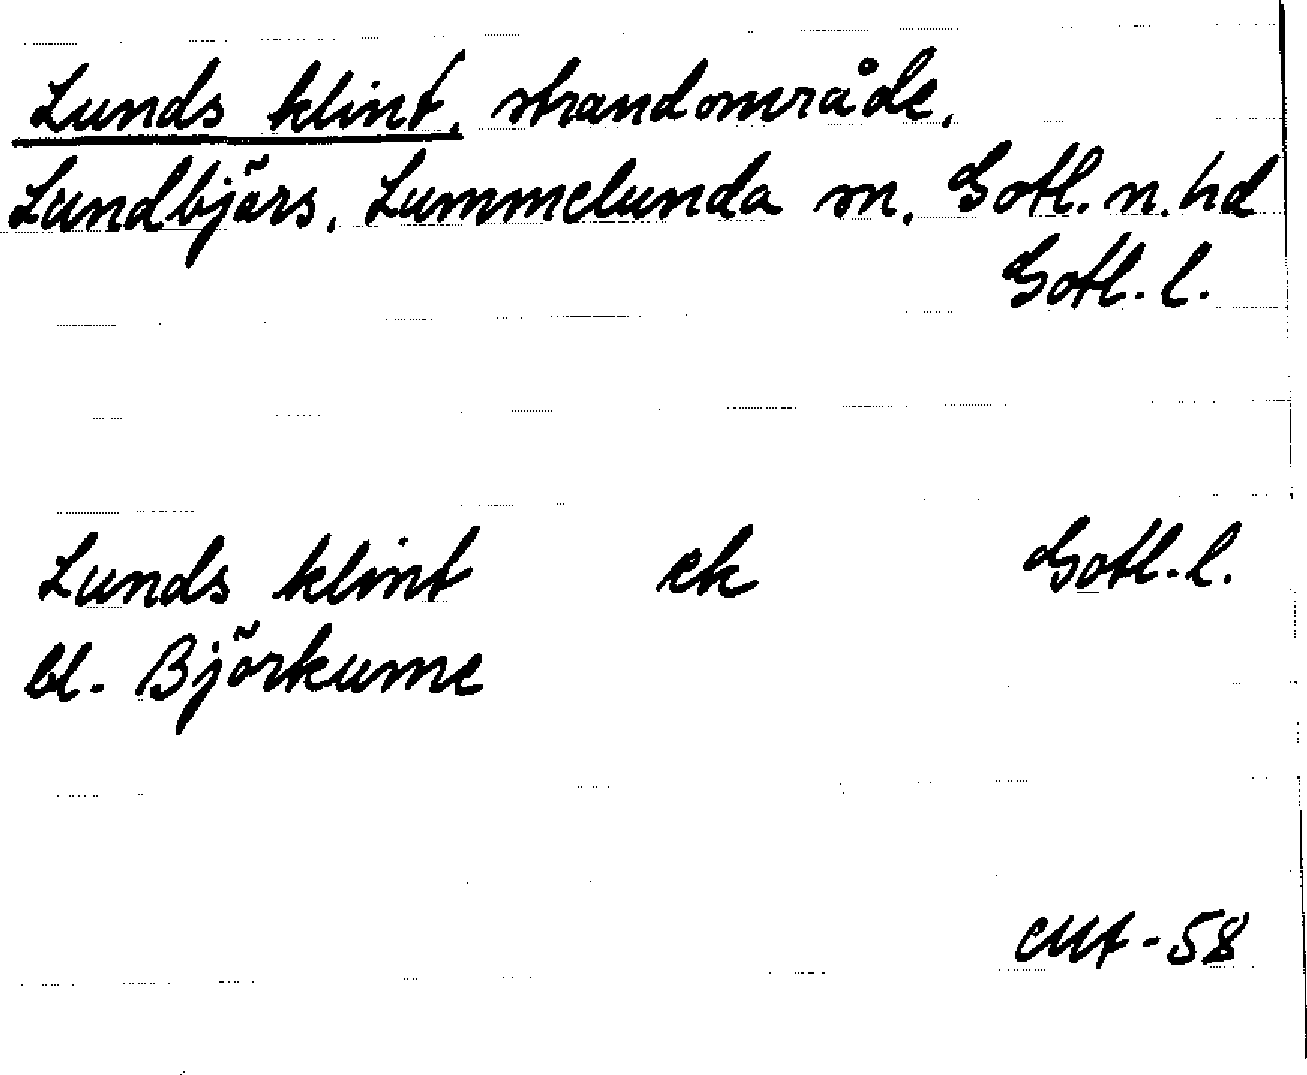 Lunds klint, strandområde,
Lundbjärs, Lummelunda sn, Gotl. n. hd
Gotl. l.
Lunds klint ek Gotl. l.
bl. Björkume
-58